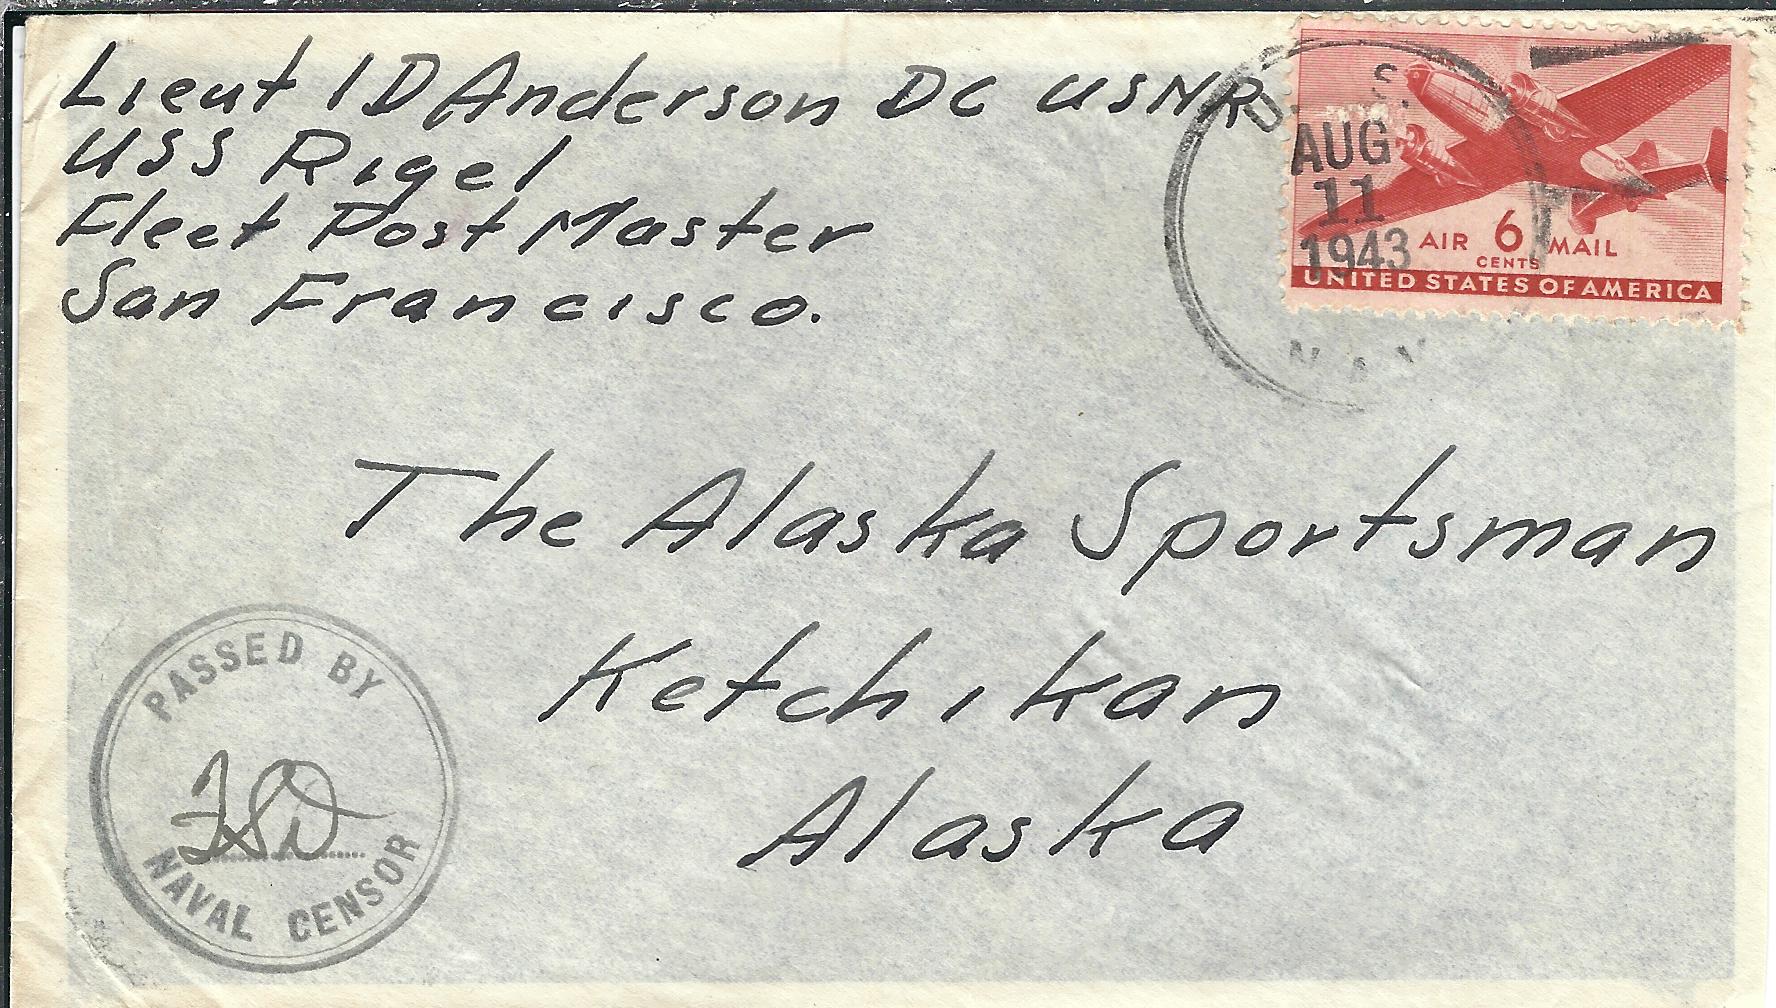 Lieut I D Anderson DC USNR
USS Rigel
Fleet Post Master
San Francisco.
U. S.
AUG
11
1943
NAVY
AIR 6 MAIL
CENTS
UNITED STATES OF AMERICA
The Alaska Sportsman
Ketchikan
Alaska
PASSED BY
NAVAL CENSOR